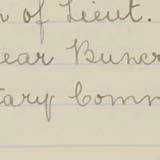 of Lieut.
ear Buncr
tary Comm